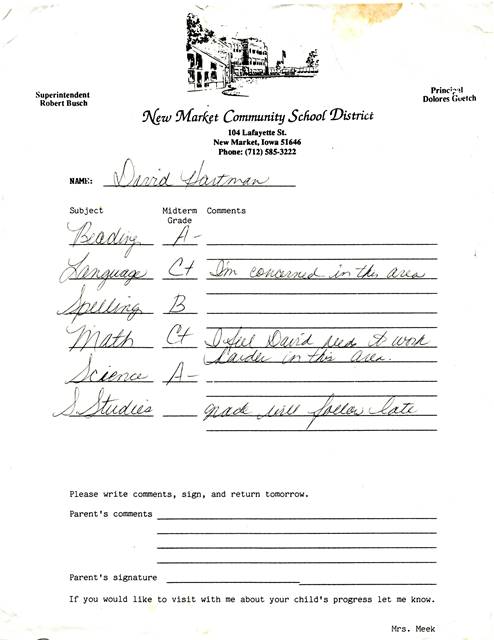 Superintendent
Robert Busch
Principal
Dolores Goetch
New Market Community School District
104 Lafayette St.
New Market, Iowa 51646
Phone: (712) 585-3222
NAME: David Hartman
Subject Midterm Grade Comments
Reading A-
Language C+ I'm concerned in this area
Spelling B
Math C+ I feel David needs to work
harder in this area.
Science A-
S. Studies grade will follow late
Please write comments, sign, and return tomorrow.
Parent's comments
Parent's signature
If you would like to visit with me about your child's progress let me know.
Mrs. Meek